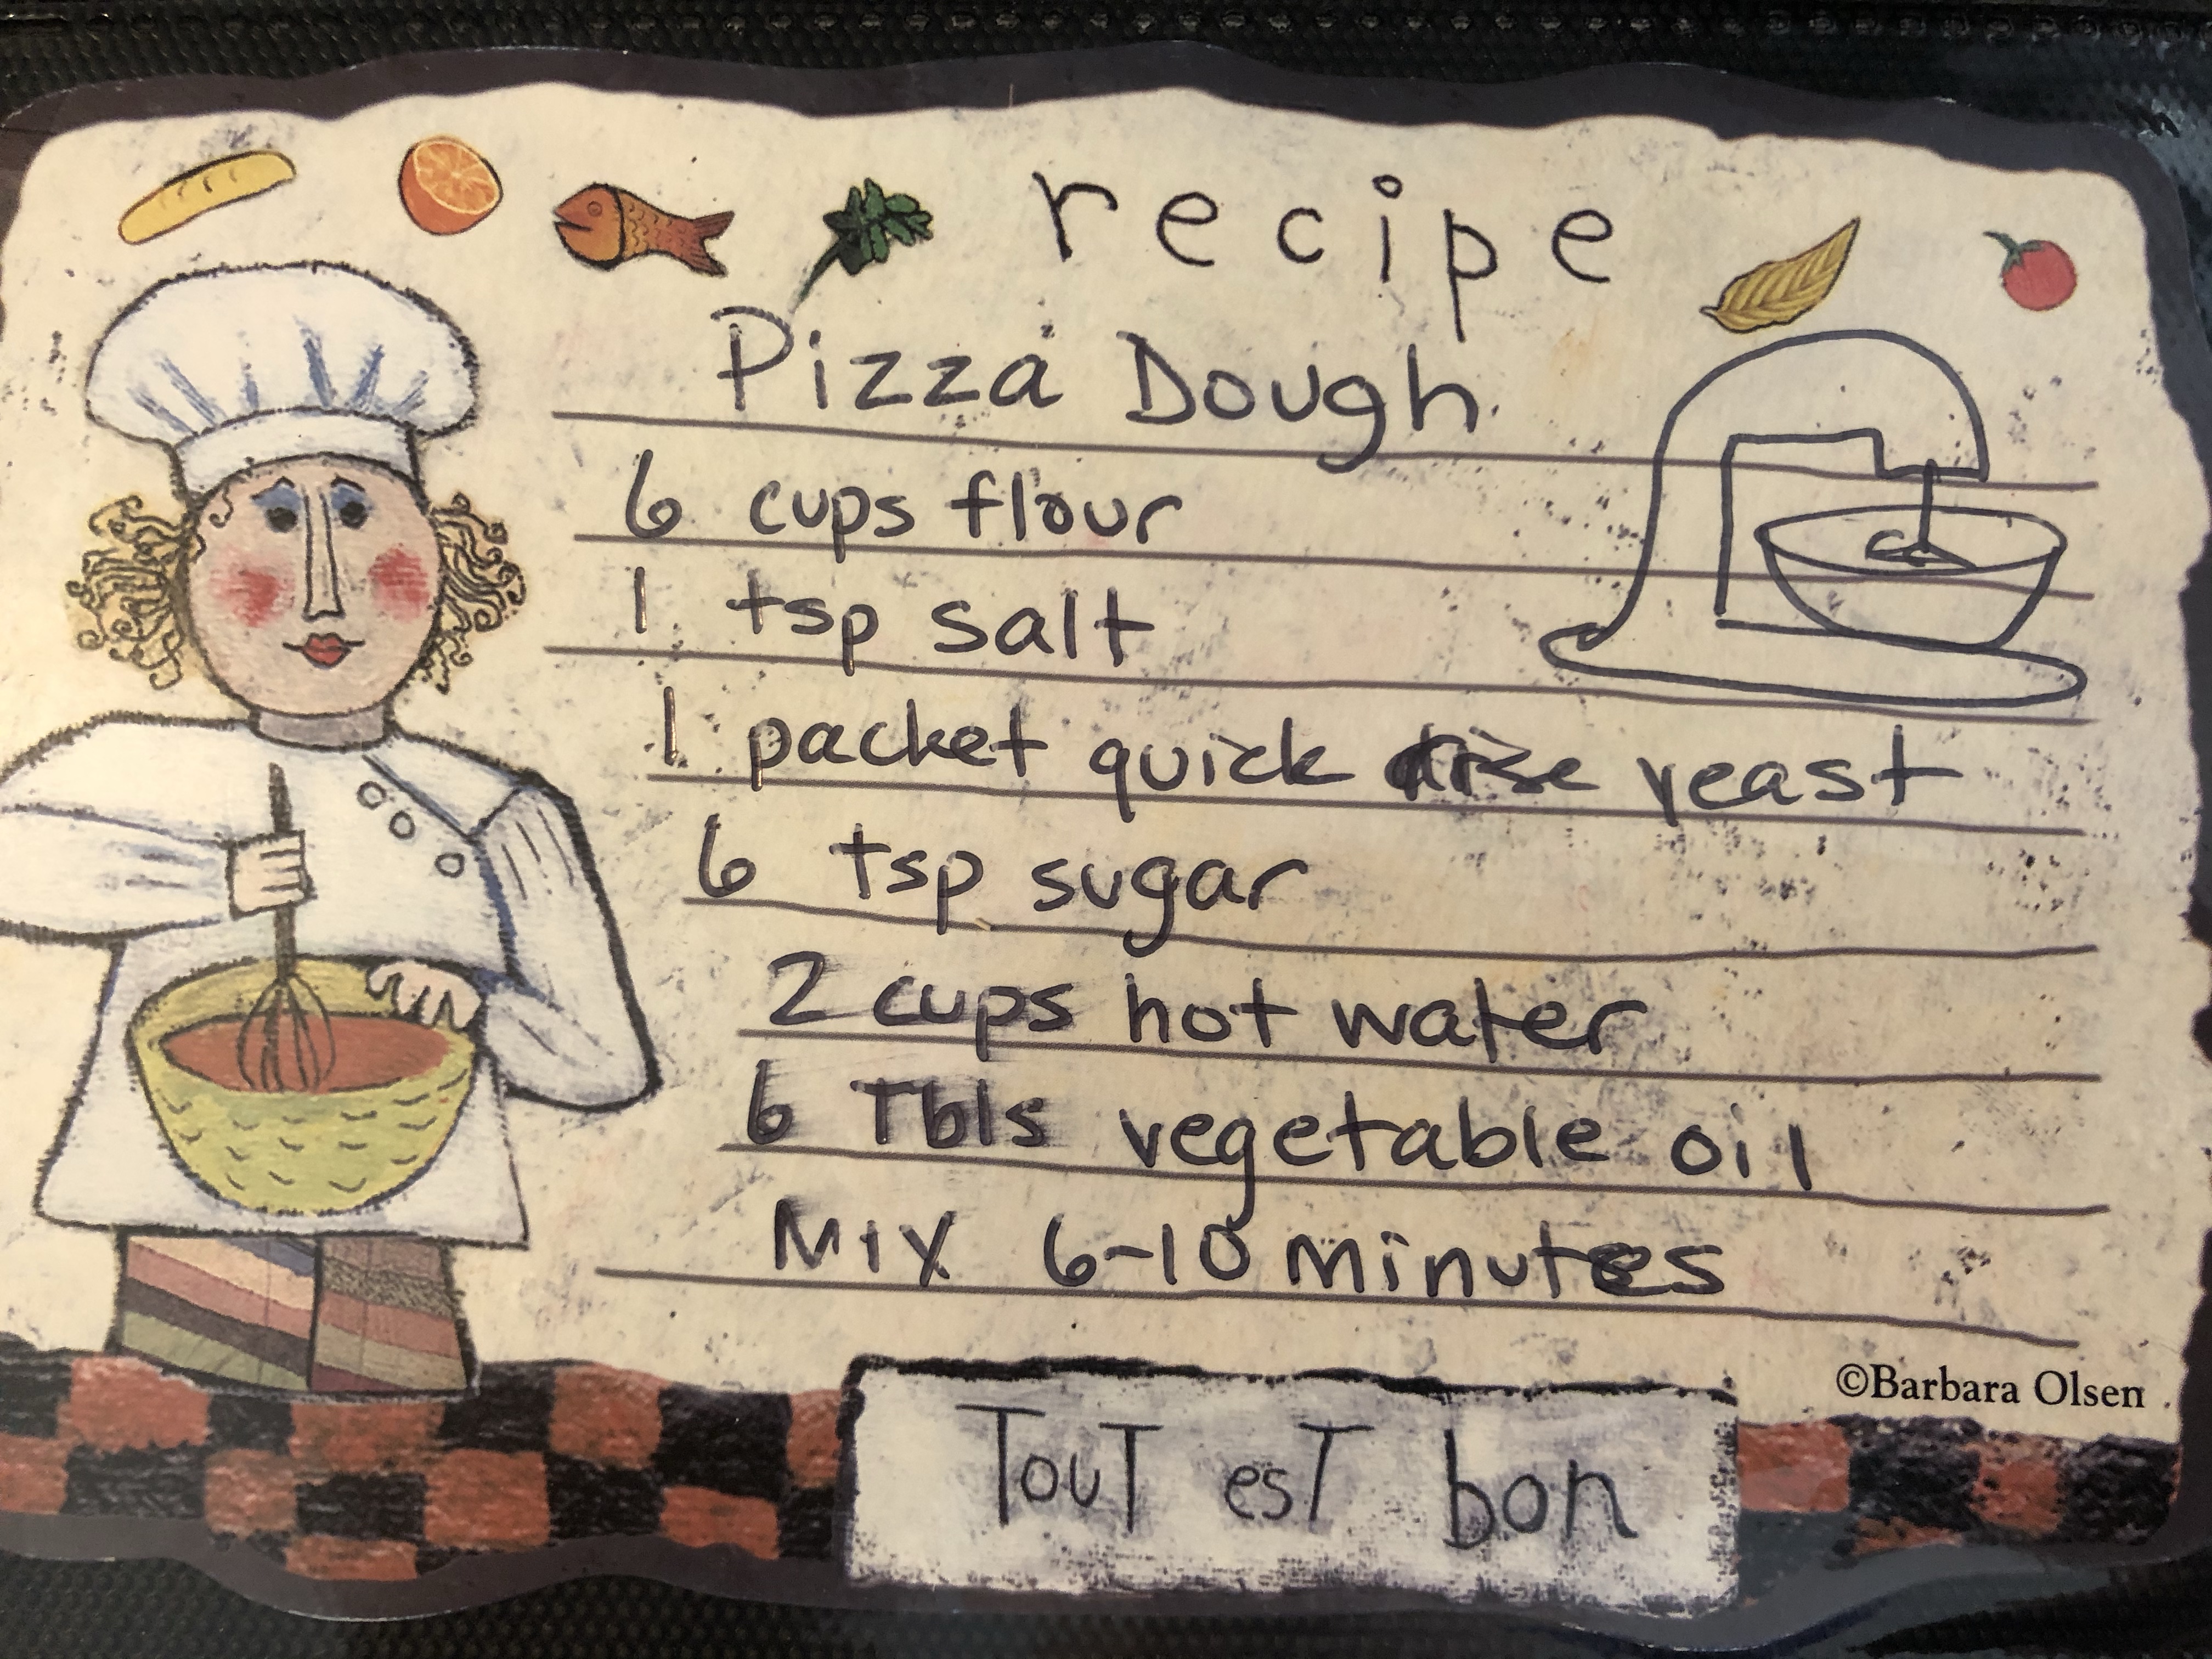 recipe
Pizza Dough
6 cups flour
1 tsp salt
1 packet quick rise yeast
6 tsp sugar
2 cups hot water
6 Tbls vegetable oil
Mix 6-10 minutes
©Barbara Olsen
TouT esT bon